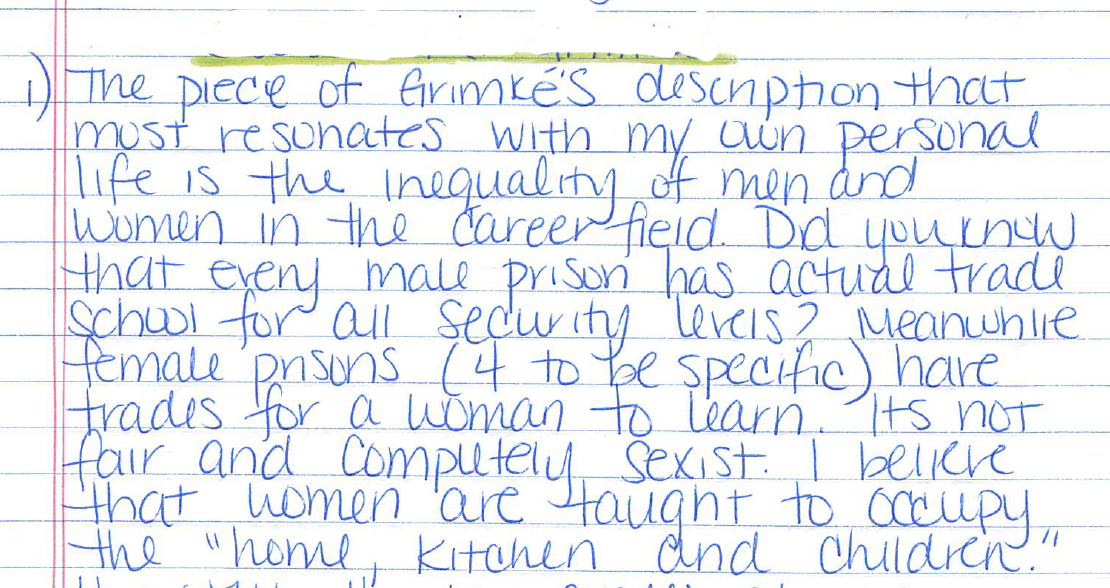 1) The piece of Grimké's description that
most resonates with my own personal
life is the inequality of men and
women in the career field. Did you know
that every male prison has actual trade
school for all security levels? Meanwhile
female prisons (4 to be specific) have
trades for a woman to learn. Its not
fair and completely sexist. I believe
that women are taught to occupy
the "home, kitchen and children."